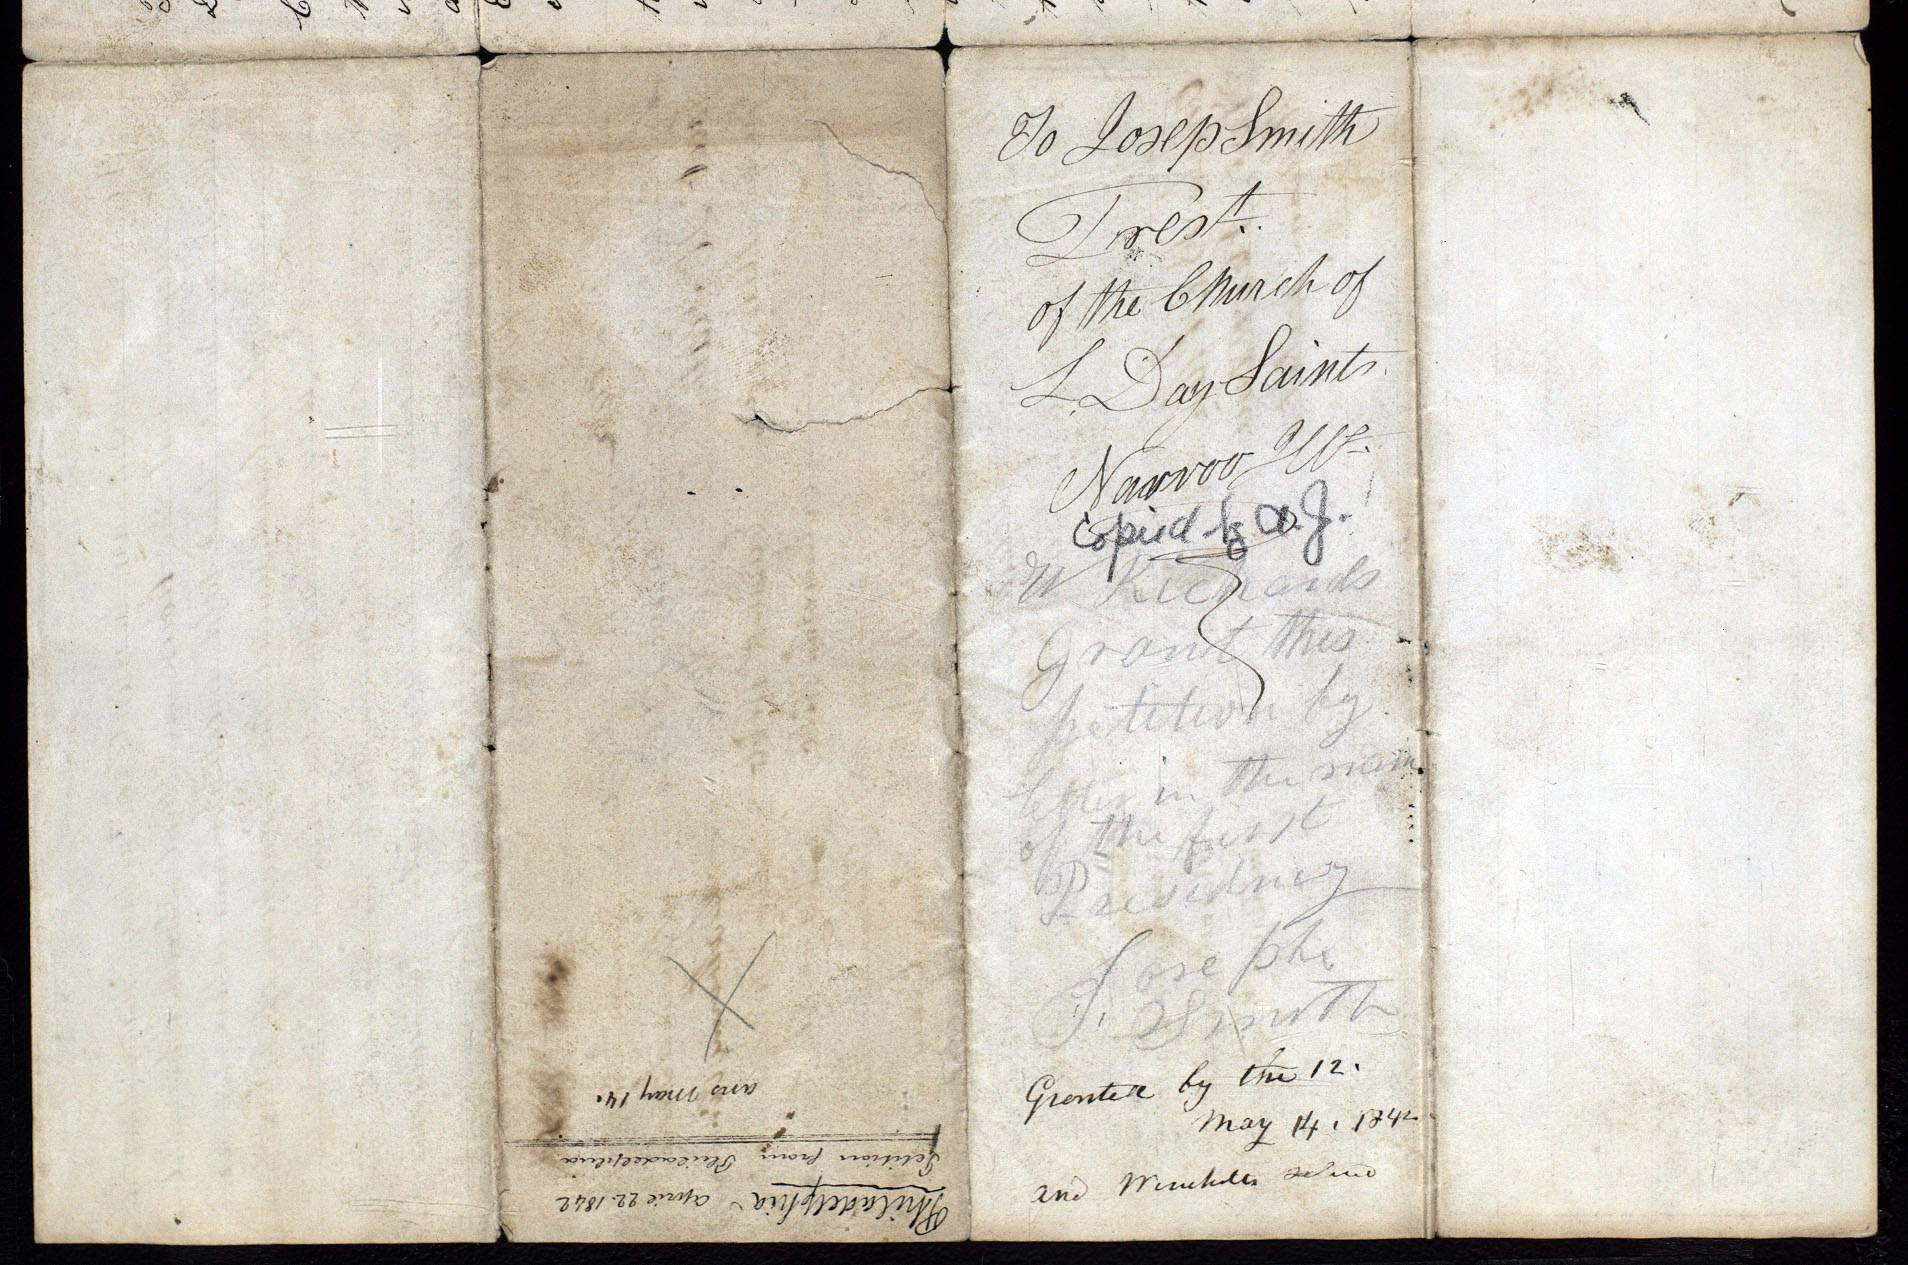 To Josep Smith
Prest.
of the Church of
L. Day Saints.
Nauvoo Ills.
Copied by A. J.
W Richards
Grant this
petition by
letter in the name
of the first
Presidency
Joseph
Smith
Granted by the 12.
May 14. 1842
and Winchester
Philadelphia April 22. 1842
Petition from Philadelphia
ans May 14.